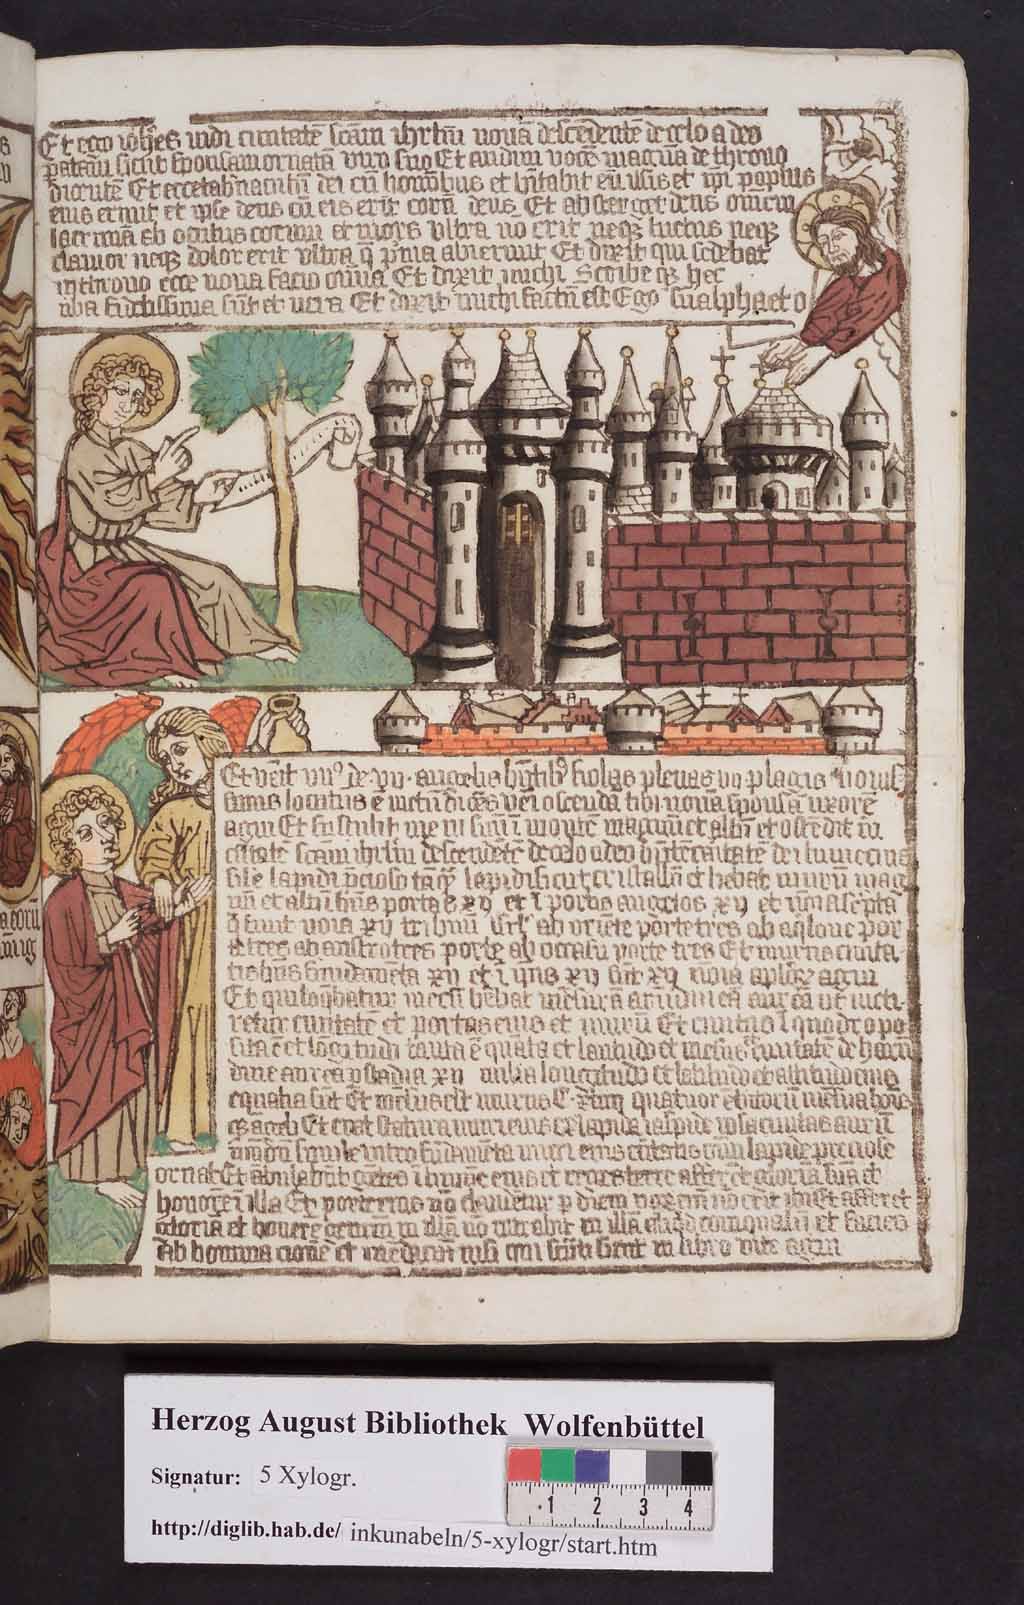 Et ego ioh̄es vidi ciuitatē scām ihrlm̄ nouā descēdentē de celo a deo
paratam sicut sponsam ornatā viro suo Et audiui vocē magnā de throno
dicentē Et ecce tab̄naculū dei cū hominibus et h̄itabit cū ip̄is et ip̄i populus
eius erunt et ipse deus cū eis erit eorū deus Et absterget deus omnem
lacrimā ab oculis eorum et mors vltra nō erit neqȝ luctus neqȝ
clamor neqȝ dolor erit vltra q̄ p̄ma abierunt Et dixit qui sedebat
in throno ecce noua facio omnia Et dixit michi Scribe qȝ hec
v̄ba fidelissima sūt et vera Et dixit michi factū est Ego sū alpha et o
Et venit vnꝰ de vij angelis h̄ntibꝰ fiolas plenas vij plagis nouis
simis locutus ē mecū dicēs veni ostendā tibi nouā sponsā vxorē
agni Et sustulit me in spū ī montē magnū et altū et ostēdit m̄
ciuitatē scām ihrlm̄ descendētē de celo a deo h̄ntē caritatē dei lumen eiꝰ
sile lapidi p̄cioso tāqȝ lapidi sicut cristallū et h̄ebat murū mag
nū et altū h̄ns portas xij et ī portis angelos xij et noīa sc̄pta
q̄ sunt noīa xij tribuū isrl̄ ab oriēte porte tres ab aq̄lone por
te tres ab austro tres porte ab occasu porte tres Et murus ciuita
tis h̄ns fūdamēta xij et ī ip̄is xij sūt xij noīa apl̄oȝ agni
Et qui loq̄batur mecū h̄ebat mēsurā arūdineā aureā vt meti
retur ciuitatē et portas eius et murū Et ciuitas ī quadro po
sita ē et lōgitudo tanta ē quāta et latitudo et mēsus ē ciuitatē de harūn
dine aurea p stadia xij milia longitudo et latitudo et altitudo eius
equalia sūt Et mēsus est murus C xliiij quatuor cubitorū mēsura hoīs
q̄ ē angeli Et erat structura muri eius ex lapide iaspide ipsa ciuitas aurū
mūdū simile vitro fūdamēta muri eius ciuitatis oīn lapide precioso
ornat Et ābulabūt gētes ī lumine eius et reges terre afferēt gloriā suā et
honorē ī illā Et porte eius nō claudētur p diem nox enī nō erit ibi Et afferēt
gloriā et honorē gentiū in illā nō intrabit in illā aliqd coinquatū et faciēs
abhominacionē et mēdaciū nisi qui scripti sunt in libro vite agni
Herzog August Bibliothek Wolfenbüttel
Signatur: 5 Xylogr.
1 2 3 4
http://diglib.hab.de/ inkunabeln/5-xylogr/start.htm